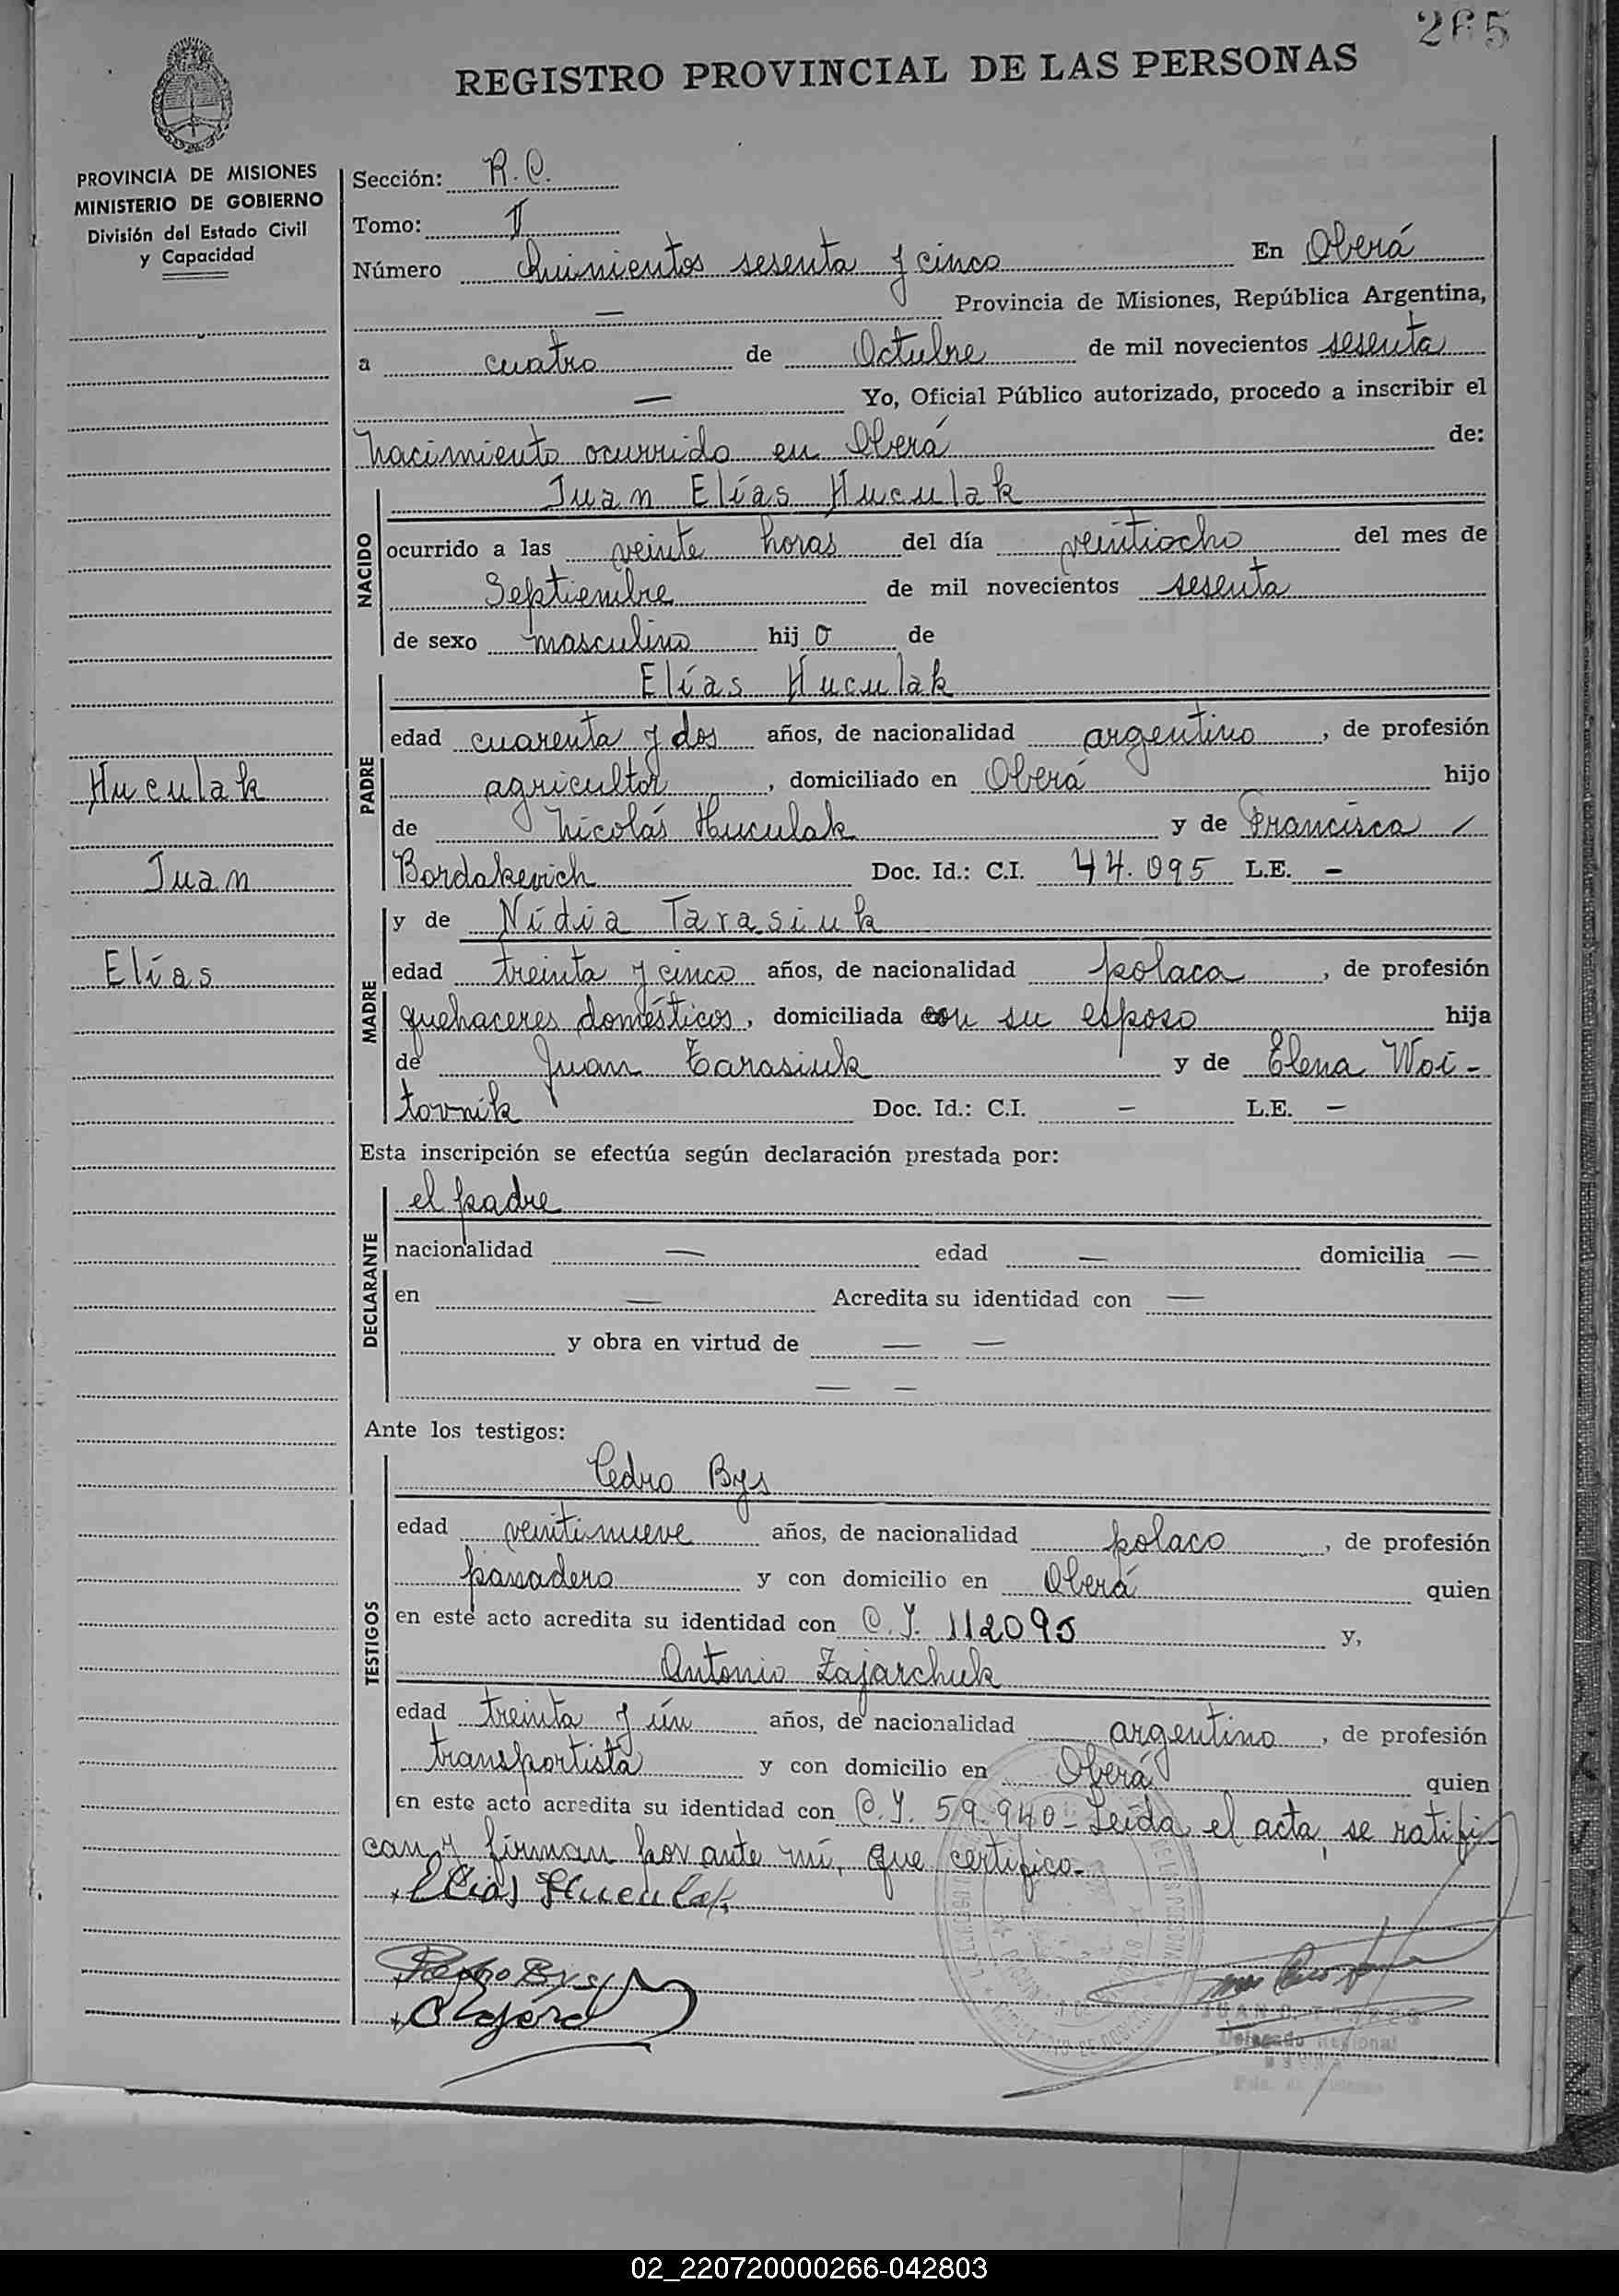 265
REGISTRO PROVINCIAL DE LAS PERSONAS
PROVINCIA DE MISIONES
MINISTERIO DE GOBIERNO
División del Estado Civil
y Capacidad
Sección: R.C.
Tomo: II
Número Quinientos sesenta y cinco En Oberá
— Provincia de Misiones, República Argentina,
a cuatro de Octubre de mil novecientos sesenta
— Yo, Oficial Público autorizado, procedo a inscribir el
nacimiento ocurrido en Oberá de:
NACIDO
Juan Elías Huculak
ocurrido a las veinte horas del día veintiocho del mes de
Septiembre de mil novecientos sesenta
de sexo masculino hijo de
PADRE
Elías Huculak
edad cuarenta y dos años, de nacionalidad argentino, de profesión
agricultor, domiciliado en Oberá hijo
de Nicolás Huculak y de Francisca /
Bordakevich Doc. Id.: C.I. 44.095 L.E. -
Huculak
Juan
Elías
MADRE
y de Nídia Tarasiuk
edad treinta y cinco años, de nacionalidad polaca, de profesión
quehaceres domésticos, domiciliada con su esposo hija
de Juan Tarasiuk y de Elena Woi-
tovnik Doc. Id.: C.I. - L.E. -
Esta inscripción se efectúa según declaración prestada por:
DECLARANTE
el padre
nacionalidad — edad — domicilia —
en — Acredita su identidad con —
y obra en virtud de — —
— —
Ante los testigos:
TESTIGOS
Pedro Bys
edad veintinueve años, de nacionalidad polaco, de profesión
panadero y con domicilio en Oberá quien
en este acto acredita su identidad con C.I. 112095 y,
Antonio Zajarchuk
edad treinta y ún años, de nacionalidad argentino, de profesión
transportista y con domicilio en Oberá quien
en este acto acredita su identidad con C.I. 59.940- Leída el acta, se ratifi-
can y firman por ante mí, que certifico.-
Elias Huculak
Pedro Bys
JUAN C. TORRES
Delegado Regional
02_220720000266-042803